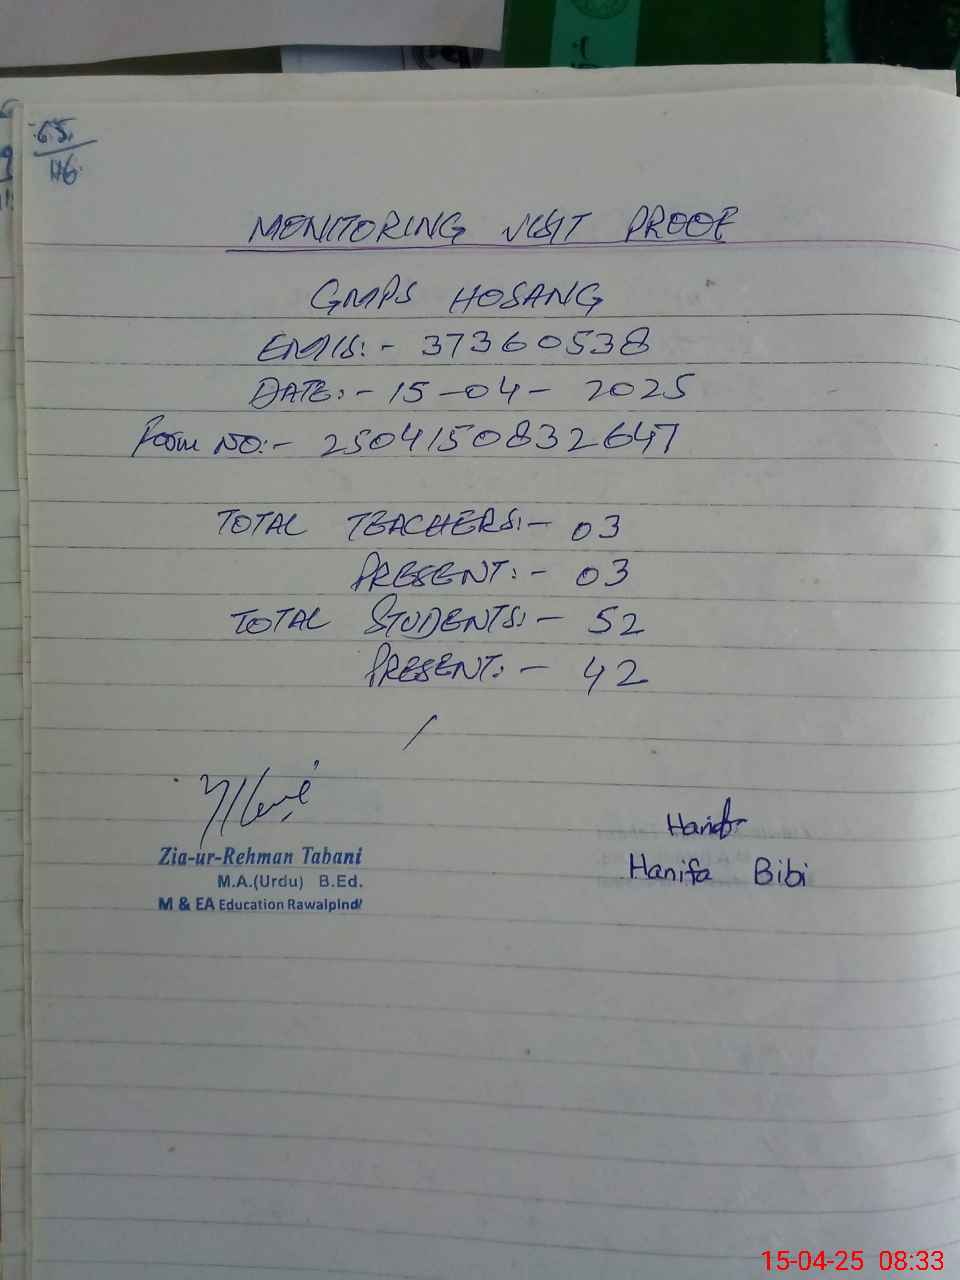 65
46
MONITORING VISIT PROOF
GMPS HOSANG
EMIS:- 37360538
DATE:- 15-04-2025
Form NO:- 2504150832647
TOTAL TEACHERS:- 03
PRESENT:- 03
TOTAL STUDENTS:- 52
PRESENT:- 42
Zia-ur-Rehman Tabani
M.A.(Urdu) B.Ed.
M & EA Education Rawalpindi
Hanifa Bibi
15-04-25 08:33